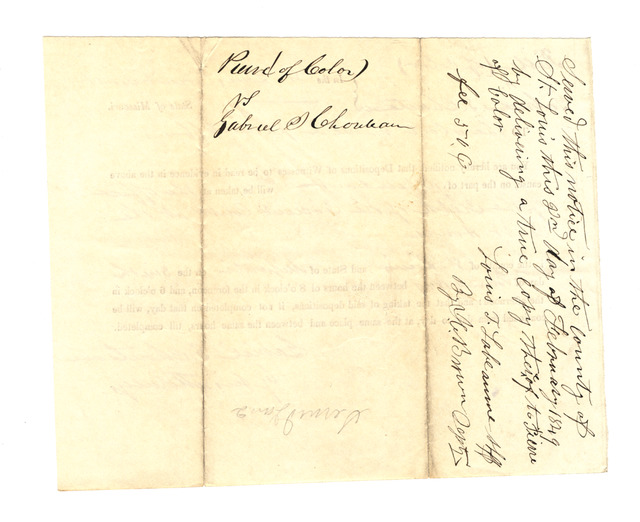 Pierre (of Color)
vs
Gabriel S Chouteau
Served this notice in the County of
St. Louis this 2nd day of February 1849
by delivering a true Copy thereof to Pierre
of Color
Louis T Labeaume Shff
By W. Brown Depty
fee 50 C
State of Missouri.
are hereby notified that Depositions of Witnesses to be read in evidence in the above
on the part of
will be taken at
and State of
on the
between the hours of 8 o'clock in the forenoon, and 6 o'clock in
that the taking of said depositions, if not completed on that day, will be
to day, at the same place and between the same hours, till completed.